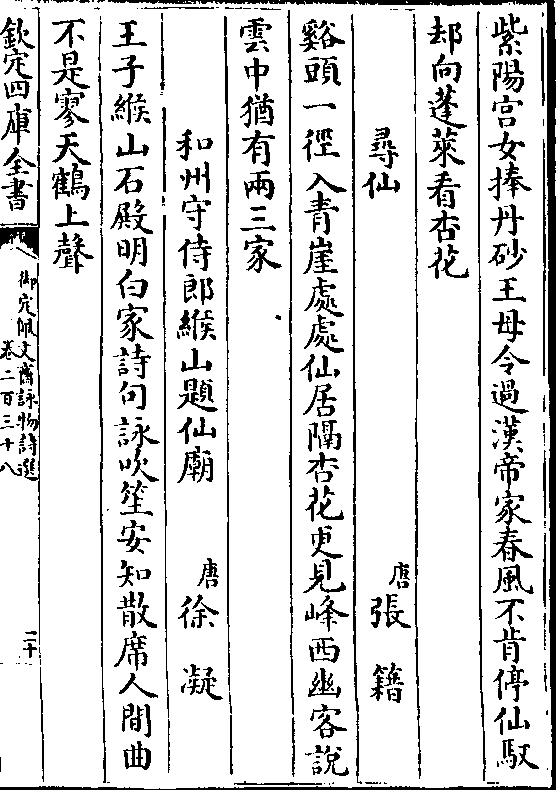 紫陽宫女捧丹砂王母令過漢帝家春風不肯停仙馭
却向蓬萊看杏花
尋仙　唐　張籍
谿頭一徑入青崖處處仙居隔杏花更見峰西幽客說
雲中猶有兩三家
和州守侍郎緱山題仙廟　唐　徐凝
王子緱山石殿明白家詩句詠吹笙安知散席人間曲
不是寥天鶴上聲
欽定四庫全書
御定佩文齋詠物詩選
卷二百三十八
二十